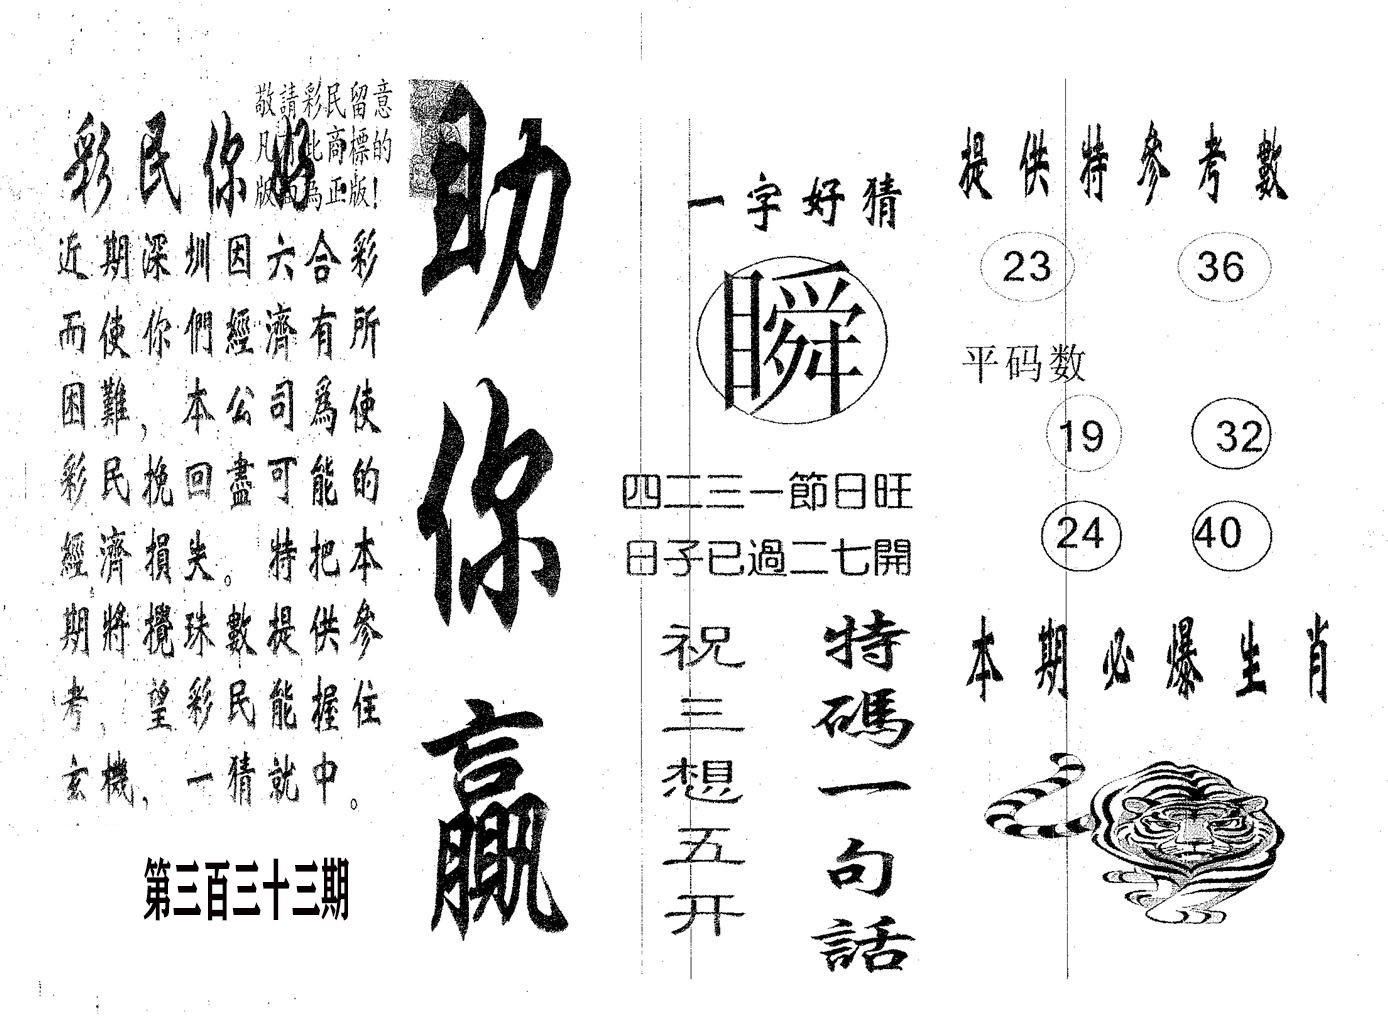 敬請彩民留意
凡有此商標的
版面為正版！
彩民你好
近期深圳因六合彩
而使你們經濟有所
困難，本公司爲使
彩民挽回盡可能的
經濟損失。特把本
期將攪珠數提供參
考，望彩民能握住
玄機，一猜就中。
第三百三十三期
助你贏
一字好猜
瞬
四二三一節日旺
日子已過二七開
特碼一句話
祝三想五开
提供特參考數
23 36
平码数
19 32
24 40
本期必爆生肖